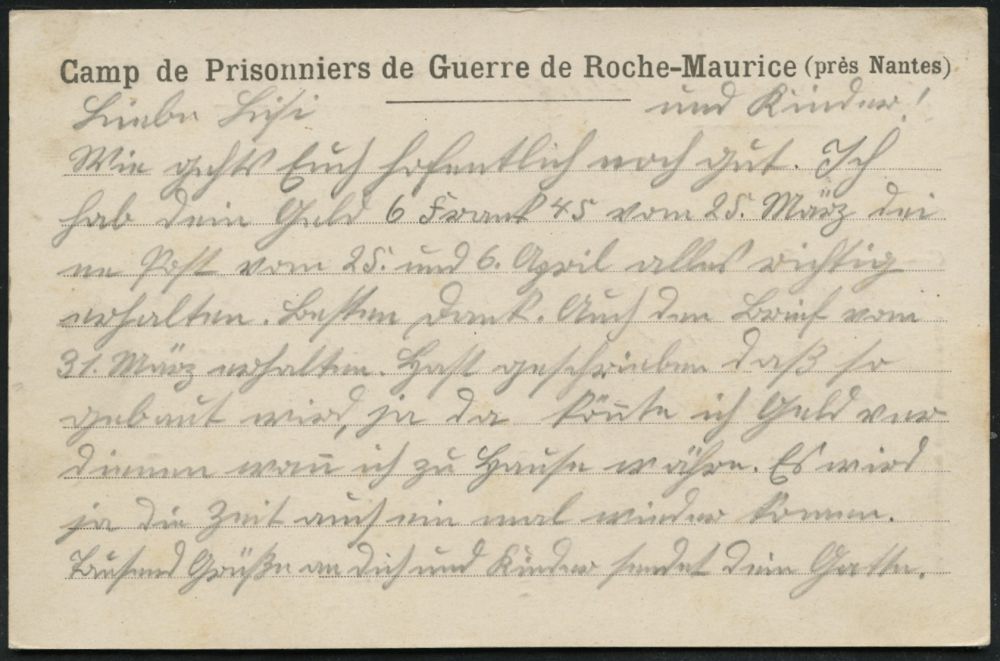 Camp de Prisonniers de Guerre de Roche-Maurice (près Nantes)
Liebe Lisi und Kinder!
Wie gehts Euch hofentlich noch gut. Ich
hab dein Geld 6 Frank 45 vom 25. März dei
ne Post vom 25. und 6. April alles richtig
erhalten. Besten Dank. Auch den Brief vom
31. März erhalten. Hast geschrieben daß so
gebaut wird, ja da kön̄te ich Geld ver
dienen wan̄ ich zu Hause währe. Es wird
ja die Zeit auch ein mal wieder komen.
Tausend Grüße an dich und Kinder sendet dein Gatte.